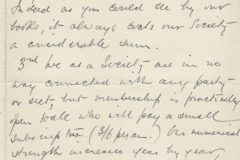 Indeed as you could see by our
books, it always costs our Society
a considerable sum.
3rd We as a Society are in no
way connected with any party
or sect, but membership is practically
open to all who will pay a small
subscription (2/6 per an.) Our numerical
strength increases year by year